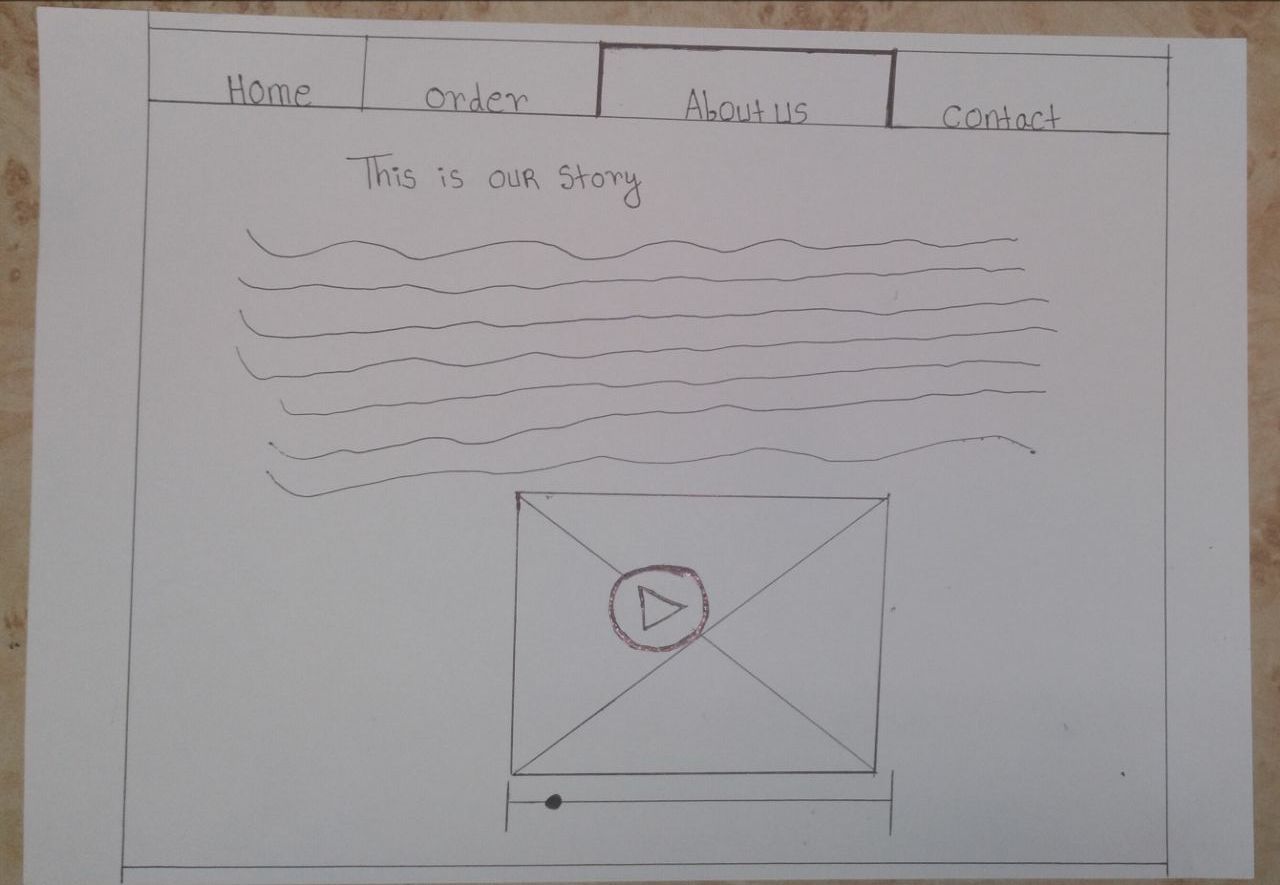 Home order About us contact
This is OUR Story